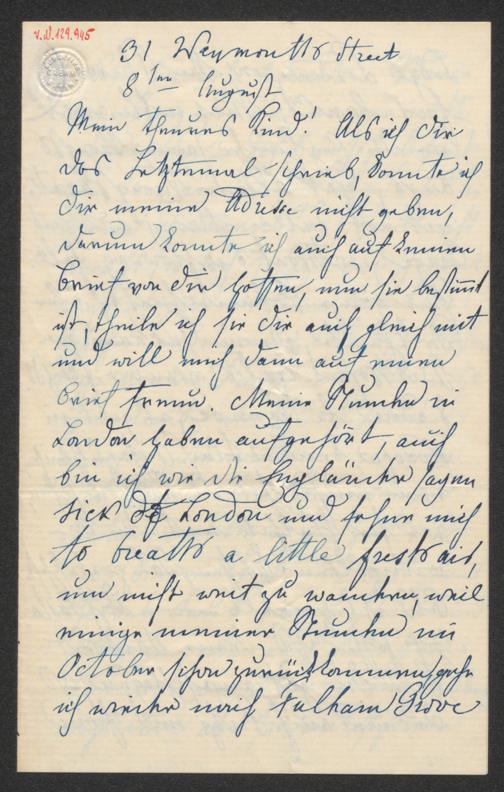 V.N. 129.945
31 Weymouth Street
8ten August
Mein theures Kind! Als ich Dir
das Letztemal schrieb, konnte ich
Dir meine Adresse nicht geben,
darum konnte ich auch auf keinen
Brief von Dir hoffen, nun sie bestimmt
ist, theile ich sie Dir auch gleich mit
und will mich dann auf einen
Brief freuen. Meine Stunden in
London haben aufgehört, auch
bin ich wie die Engländer sagen
sick of London und sehne mich
to breath a little fresh air,
um nicht weit zu wandern, weil
einige meiner Stunden im
October schon zurückkommen, gehe
ich wieder nach Fulham Grove